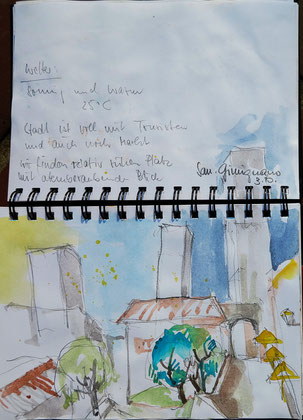 Wetter:
sonnig und warm
25°C
Stadt ist voll mit Touristen
und auch noch heiß
wir finden relativ Platz
mit atemberaubendem Blick
San Gimignano
3.10.